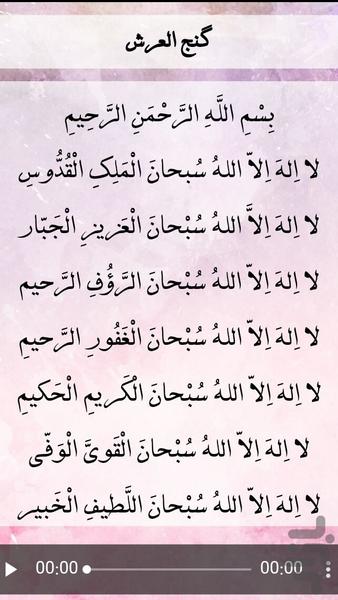 گنج العرش
بِسْمِ اللَّهِ الرَّحْمَنِ الرَّحِيمِ
لا اِلهَ اِلاّ اللهُ سُبحانَ الْمَلِكِ الْقُدُّوسِ
لا اِلهَ اِلاَّ اللهُ سُبْحانَ الْعَزيزِ الْجَبّار
لا اِلهَ اِلاّ اللهُ سُبْحانَ الرَّؤُفِ الرَّحيم
لا اِلهَ اِلاّ اللهُ سُبْحانَ الْغَفُورِ الرَّحيمِ
لا اِلهَ اِلاّ اللهُ سُبْحانَ الْكَريمِ الْحَكيمِ
لا اِلهَ اِلاّ اللهُ سُبْحانَ الْقَوِىَّ الْوَفّى
لا اِلهَ اِلاّ اللهُ سُبْحانَ اللَّطيفِ الْخَبير
00:00 00:00